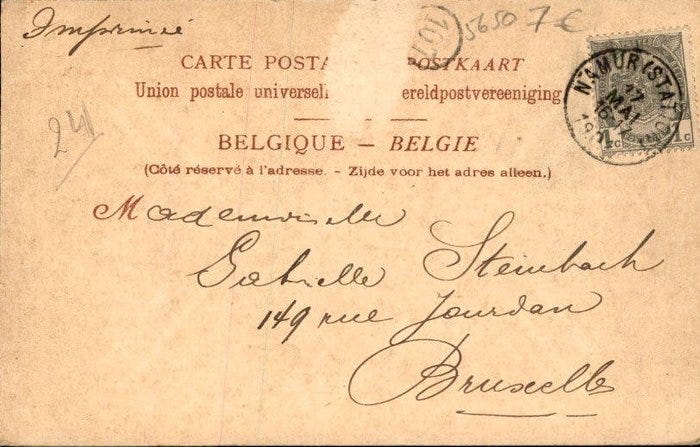 Imprimé
5650 7 €
107
CARTE POSTA POSTKAART
Union postale universell ereldpostvereeniging
BELGIQUE – BELGIE
(Côté réservé à l'adresse. - Zijde voor het adres alleen.)
NAMUR (STATION)
17
MAI
1c 1c
24
Mademoiselle
Gabrielle Steinbach
149 rue Jourdan
Bruxelles